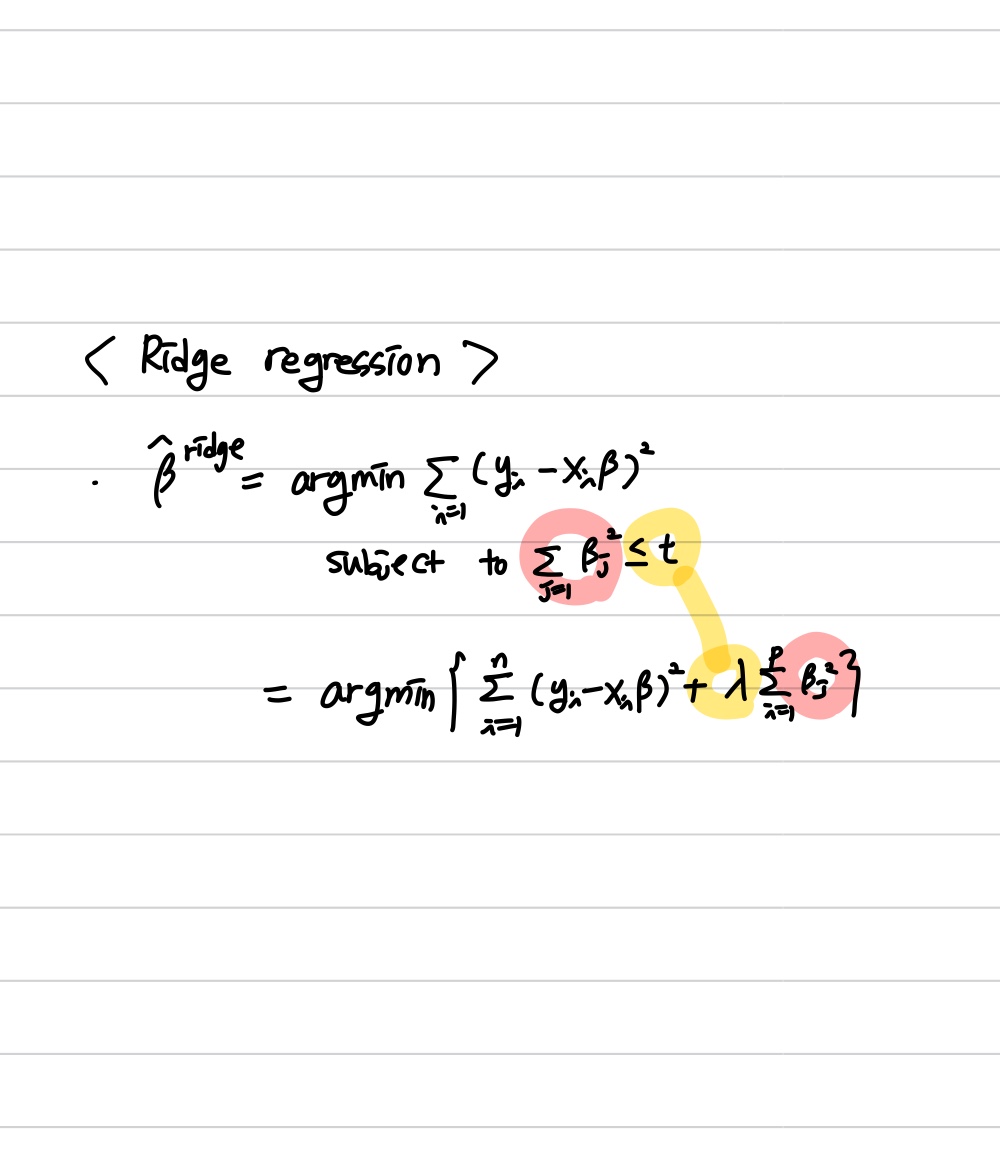 < Ridge regression >
· β̂^ridge = argmin Σ_{i=1} (y_i - x_i β)²
subject to Σ_{j=1} β_j² ≤ t
= argmin { Σ_{i=1}^{n} (y_i - x_i β)² + λ Σ_{i=1}^{p} β_j² }